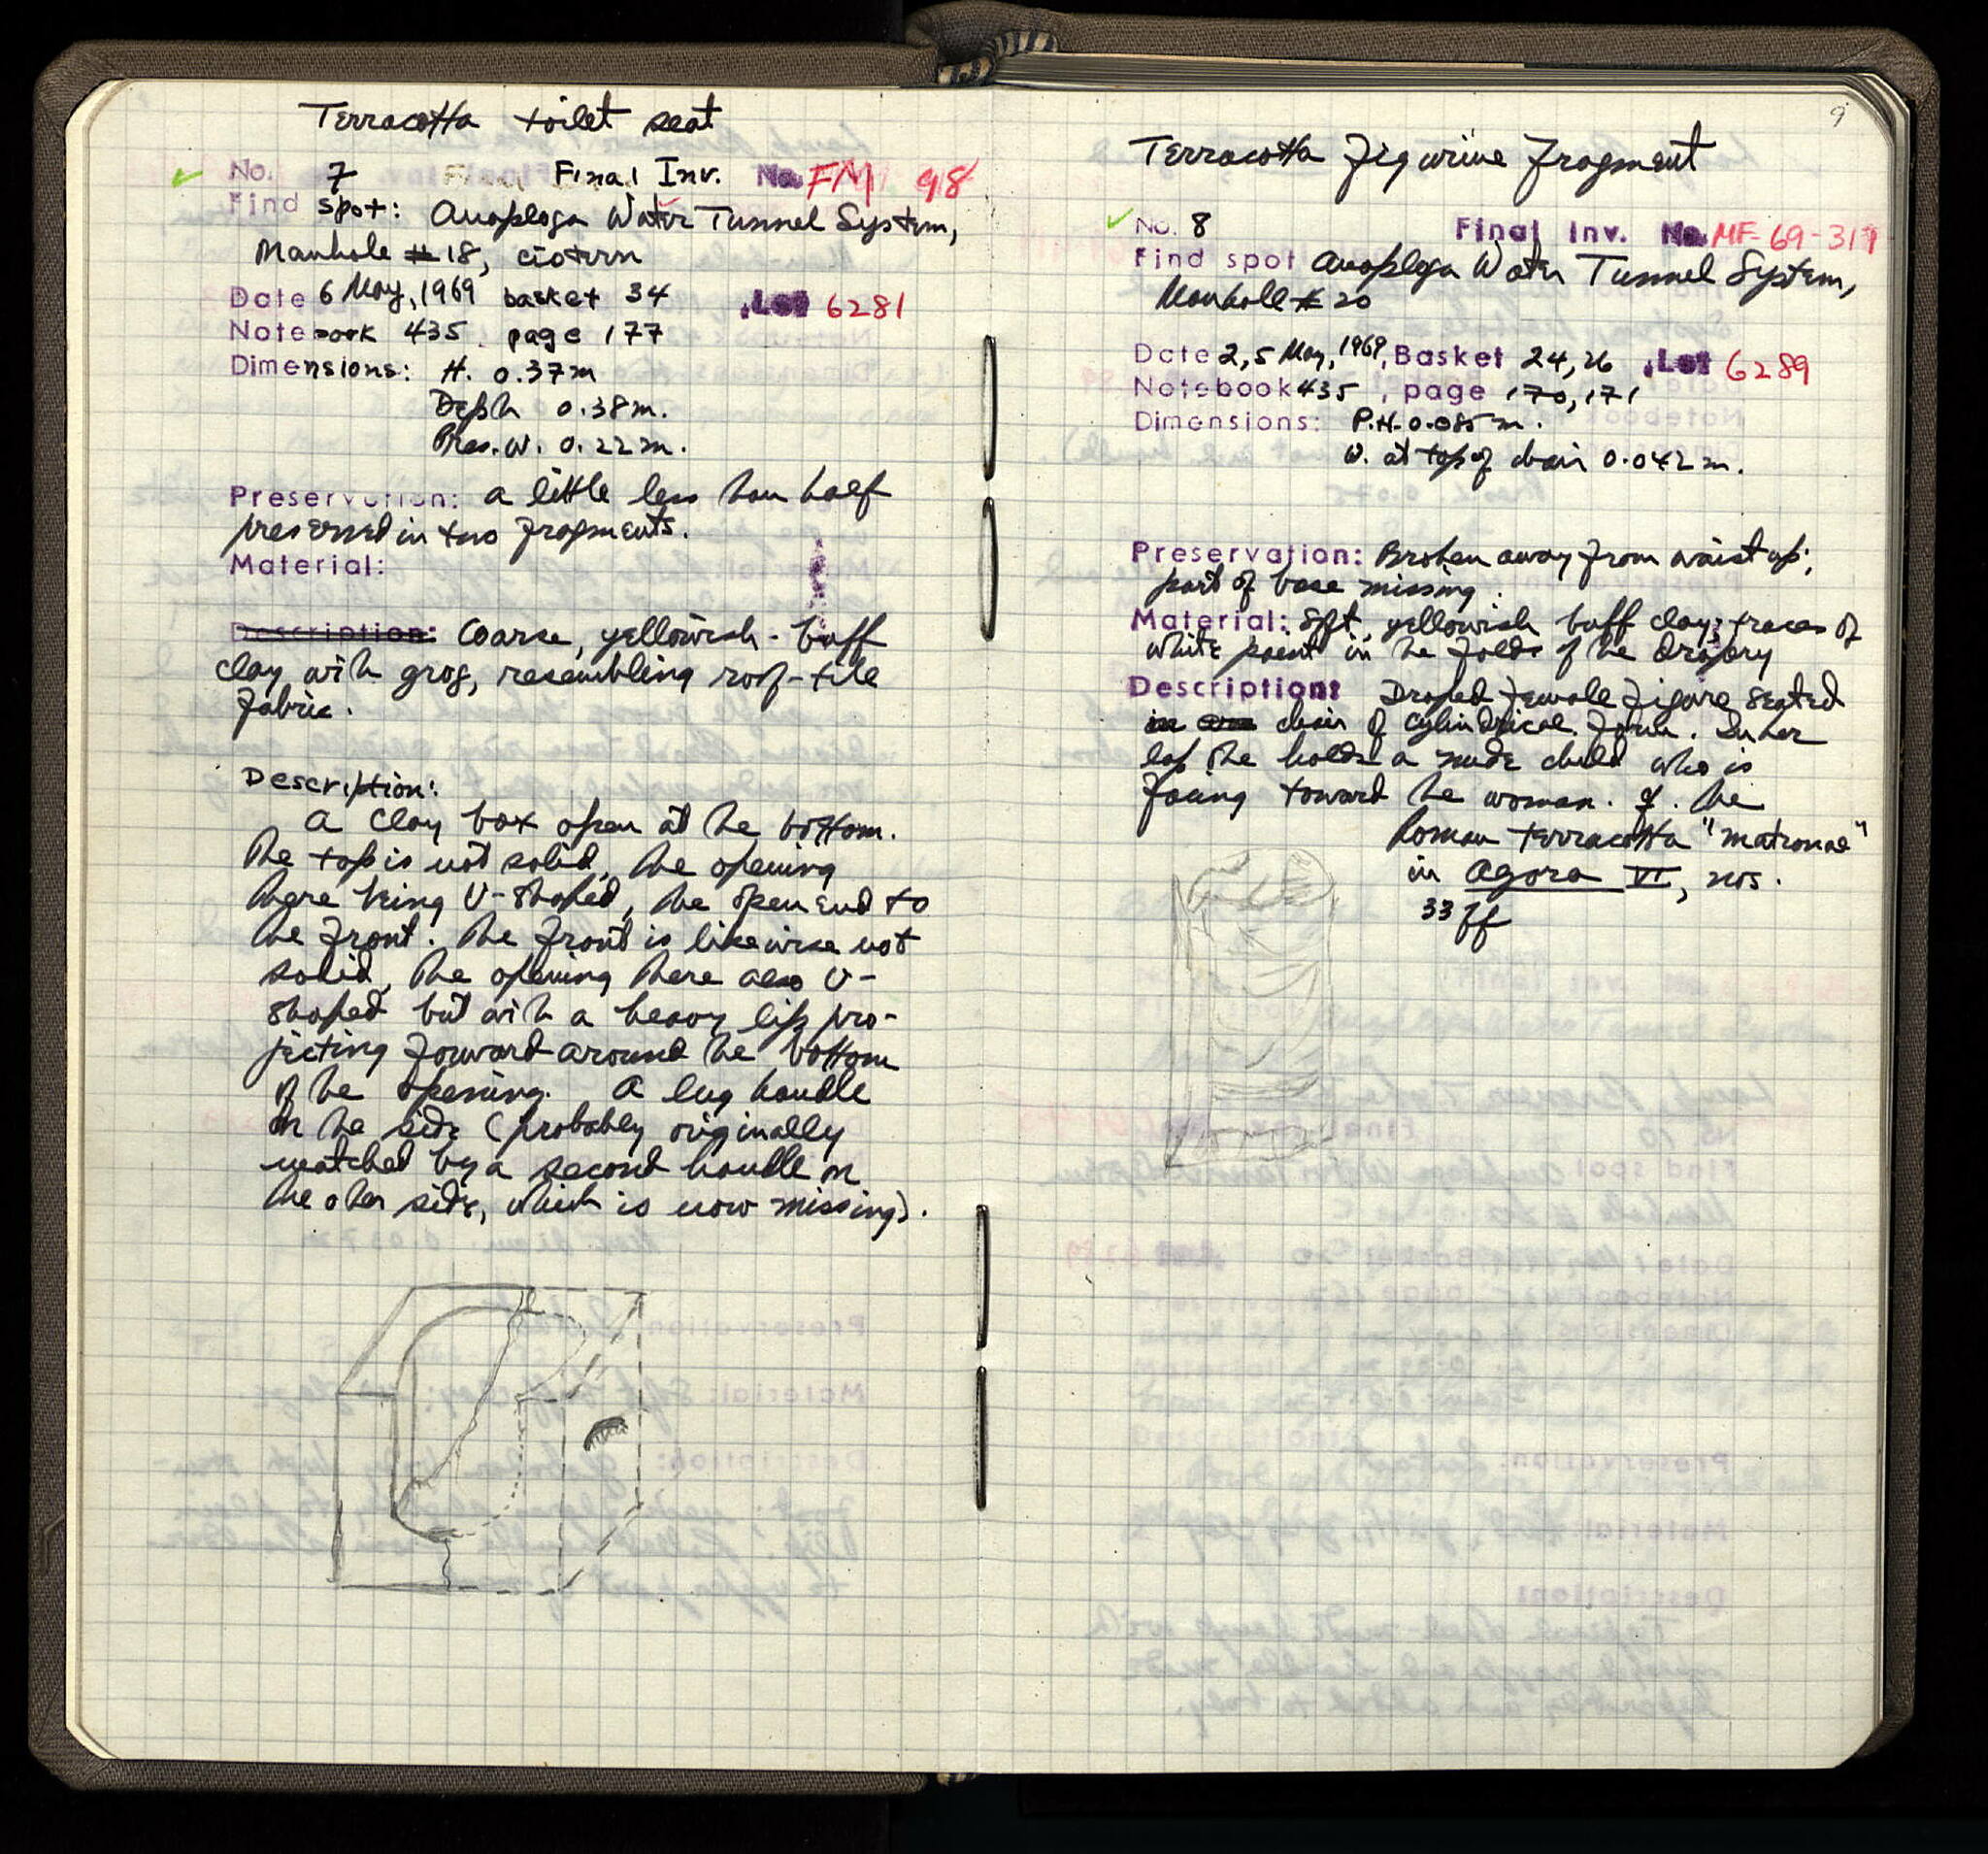 Terracotta toilet seat
No. 7 Final Inv. No. FM 98
Find spot: Anaploga Water Tunnel System,
Manhole # 18, cistern
Date 6 May, 1969 basket 34 Lot 6281
Notebook 435, page 177
Dimensions: H. 0.37m
Depth 0.38m.
Pres. W. 0.22m.
Preservation: a little less than half
preserved in two fragments.
Material:
Description: Coarse, yellowish-buff
clay with grog, resembling roof-tile
fabric.
Description:
A clay box open at the bottom.
The top is not solid, the opening
there being U-shaped, the open end to
the front. The front is likewise not
solid, the opening there also U-
shaped but with a heavy lip pro-
jecting forward around the bottom
of the opening. A lug handle
on the side (probably originally
matched by a second handle on
the other side, which is now missing).
9
Terracotta Figurine Fragment
No. 8 Final Inv. No. MF-69-317
Find spot Anaploga Water Tunnel System,
Manhole # 20
Date 2, 5 May, 1969, Basket 24, 26 Lot 6289
Notebook 435, page 170, 171
Dimensions: P.H. 0.085 m.
W. at top of chair 0.042 m.
Preservation: Broken away from waist up;
part of base missing.
Material: Soft, yellowish buff clay; traces of
white paint in the folds of the drapery
Description: Draped female figure seated
in chair of cylindrical form. In her
lap she holds a nude child who is
facing toward the woman. cf. the
Roman terracotta "matronae"
in Agora VI, nos.
33 ff